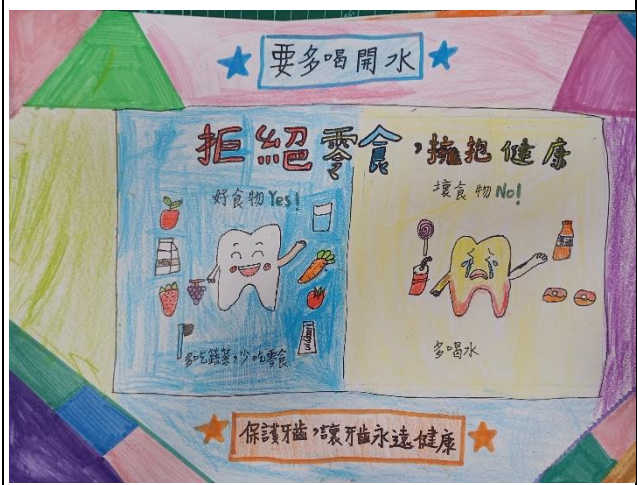 要多喝開水
拒絕零食,擁抱健康
好食物Yes!
壞食物No!
多吃蔬菜,少吃零食
多喝水
保護牙齒,讓牙齒永遠健康